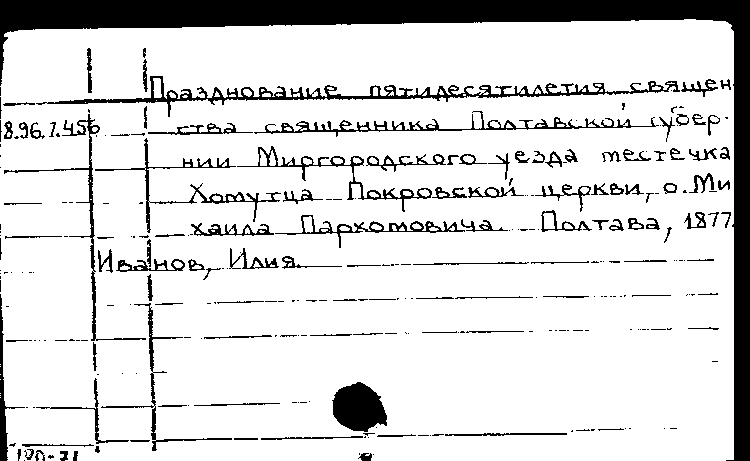 Празднование пятидесятилетия священ
8.96.7.456 ства священника Полтавской губер-
нии Миргородского уезда местечка
Хомутца Покровской церкви, о. Ми
хаила Пархомовича. Полтава, 1877.
Иванов, Илия.
180-71